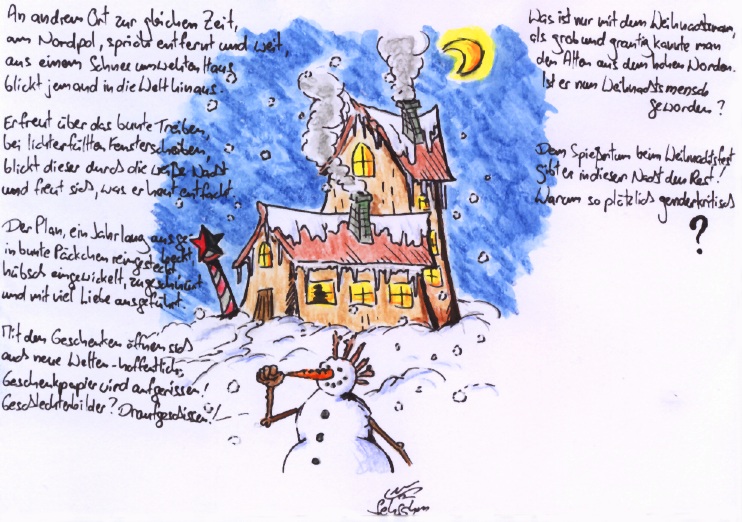 An andrem Ort zur gleichen Zeit,
am Nordpol, sprich entfernt und weit,
aus einem Schnee umwehten Haus
blickt jemand in die Welt hinaus.
Erfreut über das bunte Treiben,
bei lichterfüllten Fensterscheiben,
blickt dieser durch die weiße Nacht
und freut sich, was er heut entfacht.
Der Plan, ein Jahr lang ausge-
heckt,
in bunte Päckchen reingesteckt,
hübsch eingewickelt, zugeschnürt
und mit viel Liebe ausgeführt.
Mit den Geschenken öffnen sich
auch neue Welten - hoffentlich,
Geschenkpapier wird aufgerissen!
Geschlechterbilder? Draufgeschissen!
Was ist nur mit dem Weihnachtsmann,
als grob und grantig kannte man
den Alten aus dem hohen Norden.
Ist er nun Weihnachtsmensch
geworden?
Dem Spießertum beim Weihnachtsfest
gibt er in dieser Nacht den Rest!
Warum so plötzlich genderkritisch
?